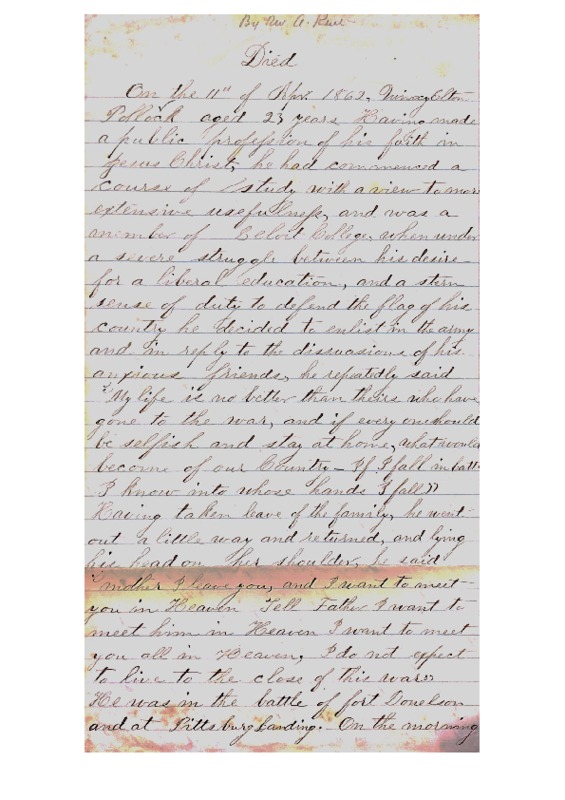 By Rev. A. Kent
Died
On the 11" of Apr. 1862, Quincy Elton
Pollock aged 23 years Having made
a public profession of his faith in
Jesus Christ, he had commenced a
course of study with a view to more
extensive usefulness, and was a
member of Beloit College, when under
a severe struggle between his desire
for a liberal education, and a stern
sense of duty to defend the flag of his
country he decided to enlist in the army
and in reply to the dissuasions of his
anxious friends, he repeatedly said
"My life is no better than theirs who have
gone to the war, and if every one should
be selfish and stay at home, what would
become of our Country - If I fall in batt
I know into whose hands I fall"
Having taken leave of the family, he went
out a little way and returned, and lying
his head on her shoulder, he said
"Mother I leave you, and I want to meet
you in Heaven Tell Father I want to
meet him in Heaven I want to meet
you all in Heaven, I do not expect
to live to the close of this war"
He was in the battle of fort Donelson
and at Pittsburg Landing. On the morning